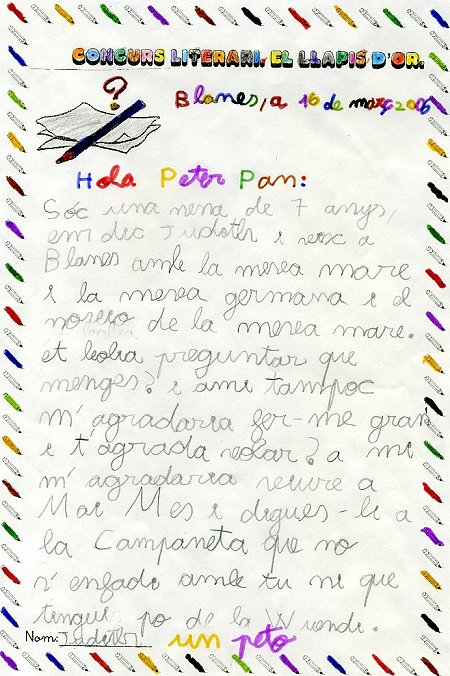 CONCURS LITERARI, EL LLAPIS D'OR.
?
Blanes, a 16 de març 2006
Hola Peter Pan:
Sóc una nena de 7 anys,
em dic Judith i visc a
Blanes amb la meva mare
i la meva germana i el
de la meva mare.
et bolia preguntar que
menges? i ami tampoc
m'agradaria fer-me gran
i t'agrada volar? a mi
m'agradaria viure a
Mai Mes i digues-li a
la Campaneta que no
s'enfadi amb tu ni que
tingui po de la Wuendi.
Nom: Judith un peto